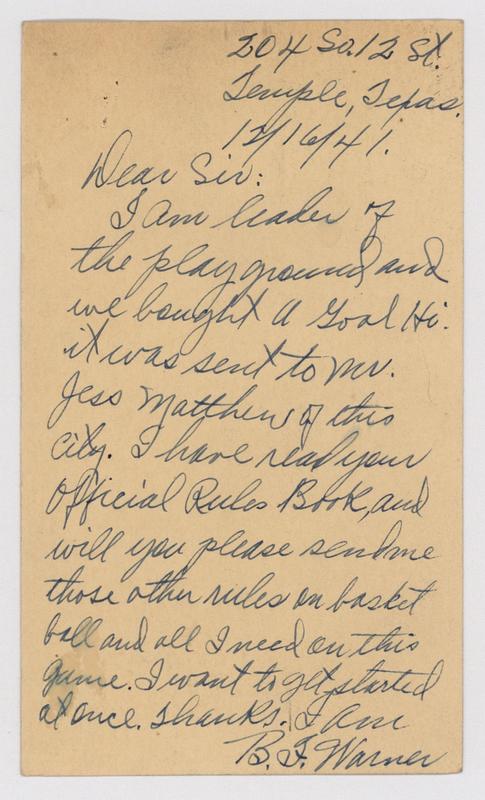 204 So. 12 St.
Temple, Texas.
12/16/41.
Dear Sir:
I Am leader of
the playground and
we bought A Goal Hi.
it was sent to Mr.
Jess Matthew of this
City. I have read your
Official Rules Book, and
will you please send me
those other rules on basket
ball and all I need on this
game. I want to get started
at once. Thanks. I Am
B. F. Warner